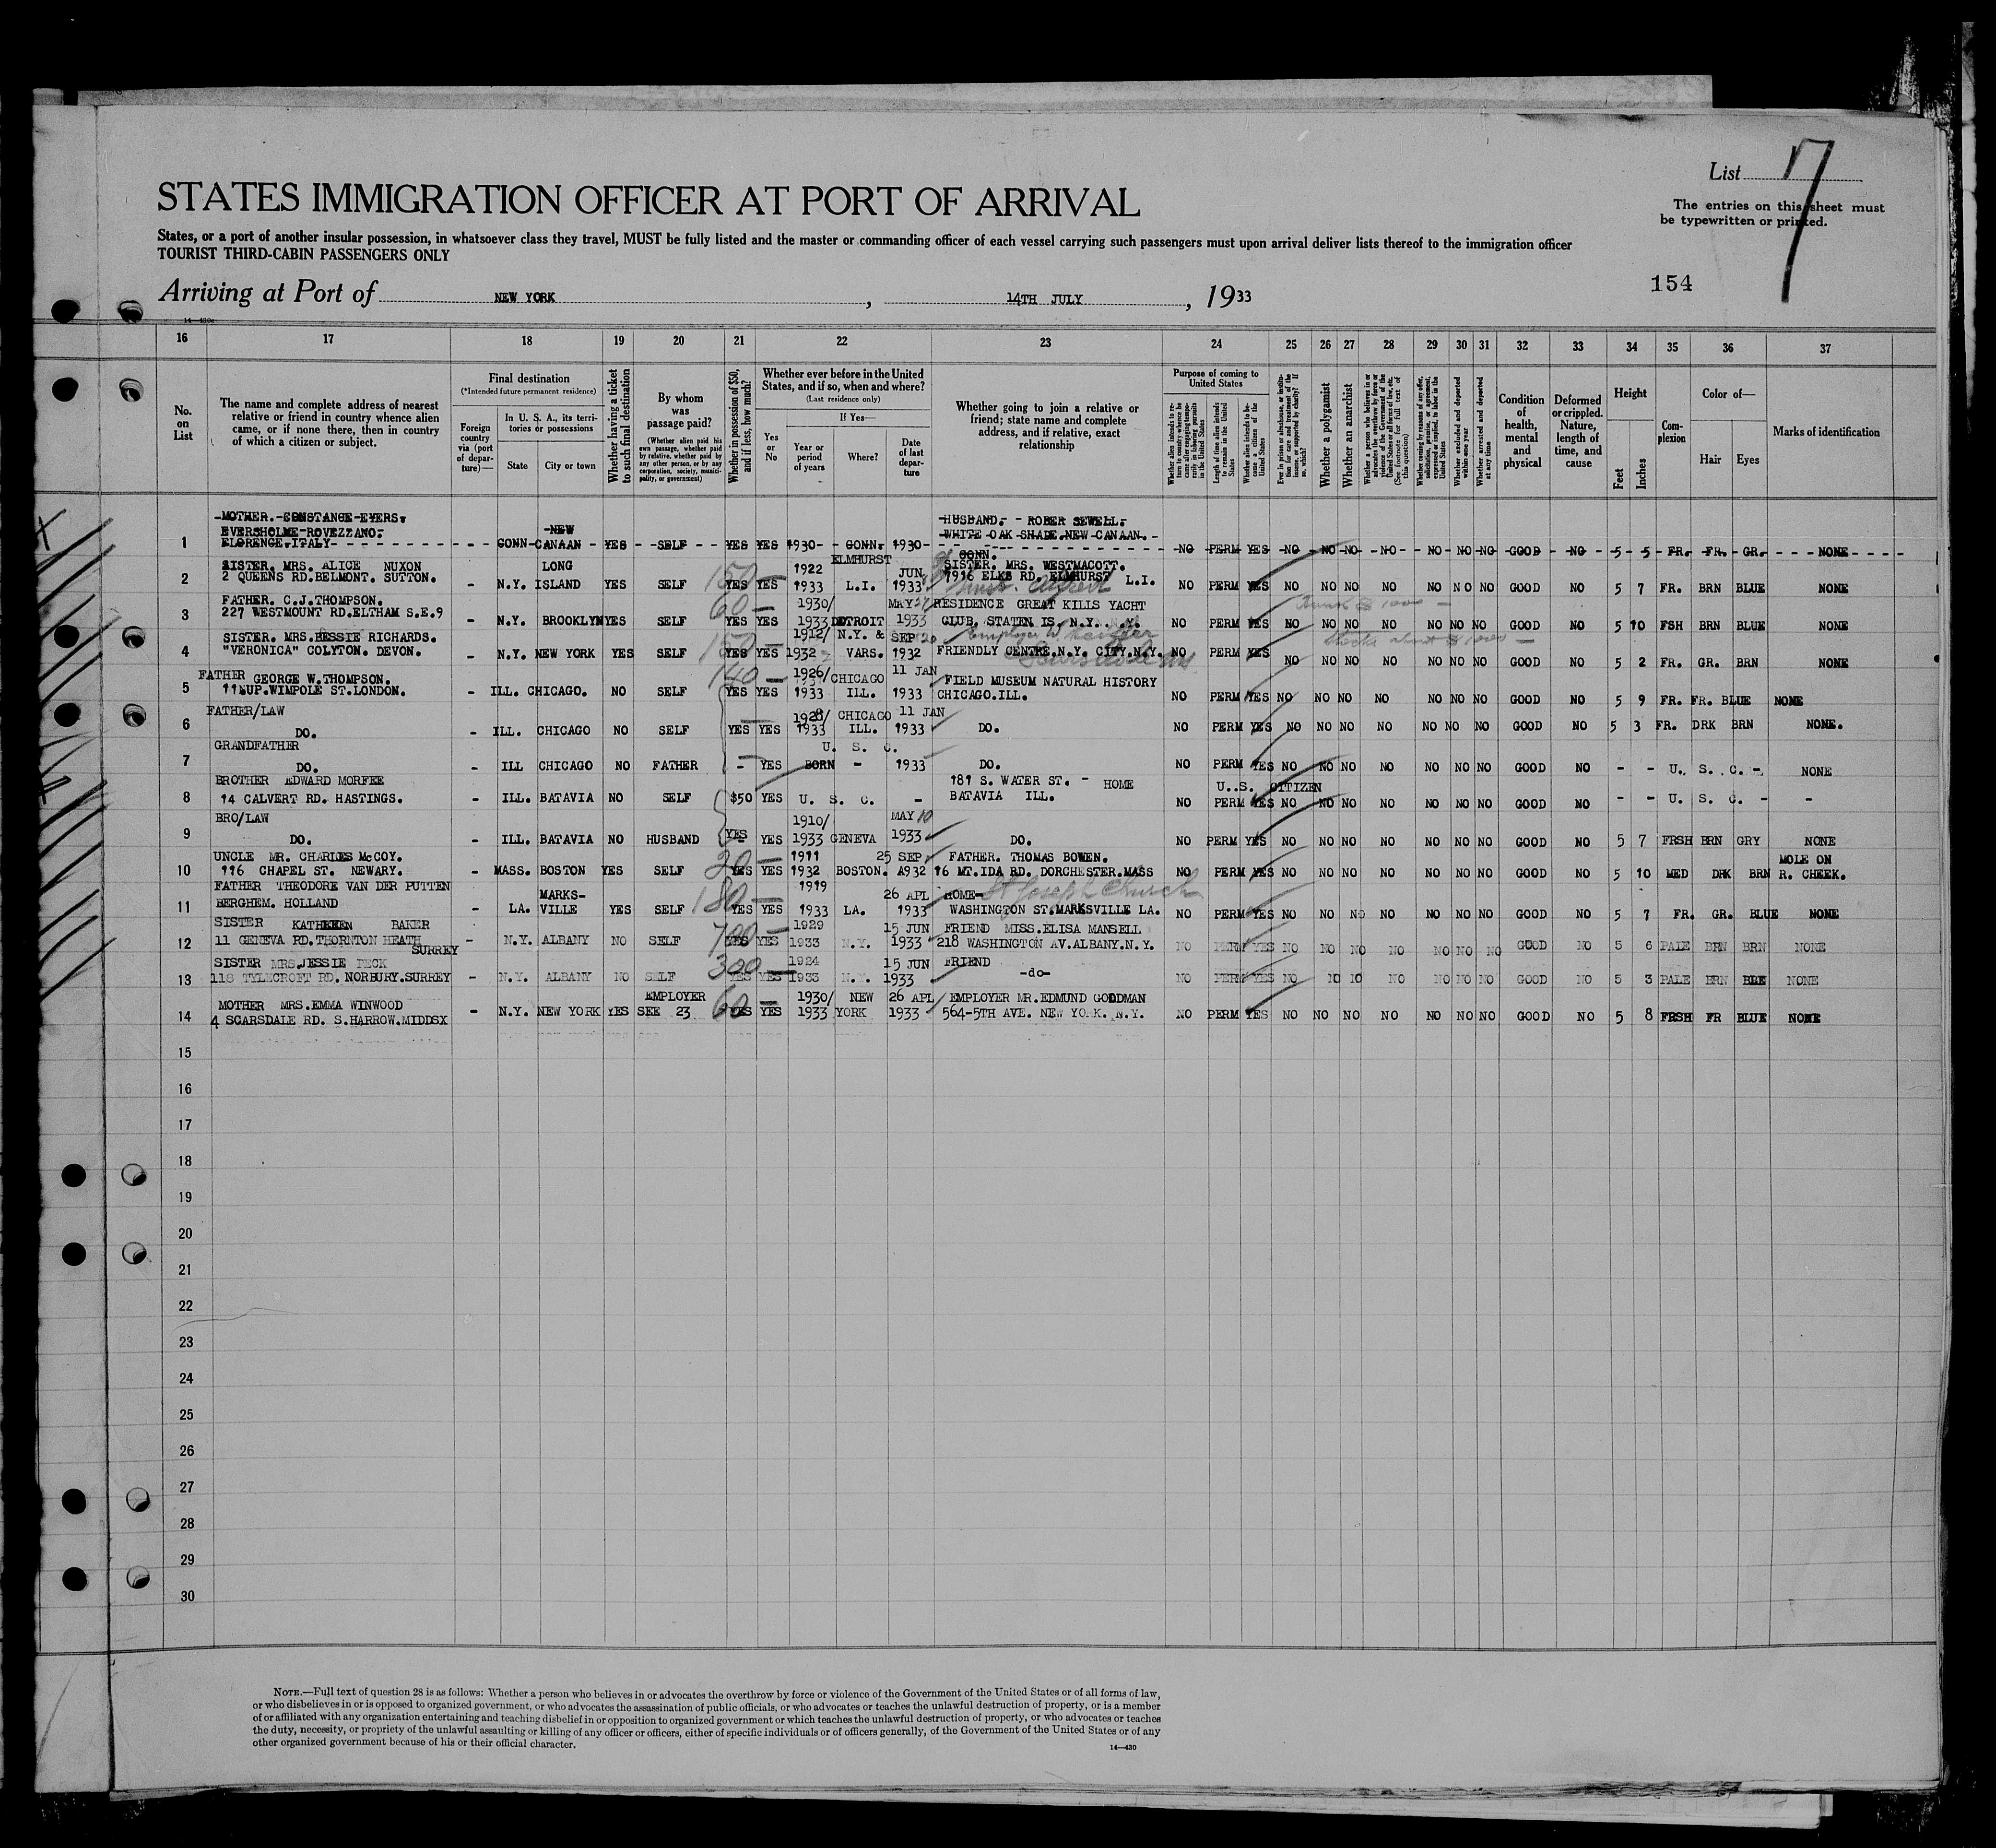 List 17
STATES IMMIGRATION OFFICER AT PORT OF ARRIVAL
The entries on this sheet must
be typewritten or printed.
States, or a port of another insular possession, in whatsoever class they travel, MUST be fully listed and the master or commanding officer of each vessel carrying such passengers must upon arrival deliver lists thereof to the immigration officer
TOURIST THIRD-CABIN PASSENGERS ONLY
154
Arriving at Port of NEW YORK, 14TH JULY, 1933
16 17 18 19 20 21 22 23 24 25 26 27 28 29 30 31 32 33 34 35 36 37
No. on List
The name and complete address of nearest relative or friend in country whence alien came, or if none there, then in country of which a citizen or subject.
Final destination
(*Intended future permanent residence)
Foreign country via (port of departure)—
In U. S. A., its territories or possessions
State
City or town
Whether having a ticket to such final destination
By whom was passage paid?
(Whether alien paid his own passage, whether paid by relative, whether paid by any other person, or by any corporation, society, municipality, or government)
Whether in possession of $50, and if less, how much?
Whether ever before in the United States, and if so, when and where?
(Last residence only)
Yes or No
If Yes—
Year or period of years
Where?
Date of last departure
Whether going to join a relative or friend; state name and complete address, and if relative, exact relationship
Purpose of coming to United States
Whether alien intends to return to country whence he came after engaging temporarily in laboring pursuits in the United States
Length of time alien intends to remain in the United States
Whether alien intends to become a citizen of the United States
Ever in prison or almshouse, or institution for care and treatment of the insane, or supported by charity? If so, which?
Whether a polygamist
Whether an anarchist
Whether a person who believes in or advocates the overthrow by force or violence of the Government of the United States or all forms of law, etc. (See footnote for full text of this question)
Whether coming by reason of any offer, solicitation, promise, or agreement, expressed or implied, to labor in the United States
Whether excluded and deported within one year
Whether arrested and deported at any time
Condition of health, mental and physical
Deformed or crippled. Nature, length of time, and cause
Height
Feet
Inches
Complexion
Color of—
Hair
Eyes
Marks of identification
MOTHER. CONSTANCE EYERS. NEW HUSBAND. - ROBER SEWELL.
EVERSHOLME ROVEZZANO. WHITE OAK SHADE NEW CANAAN.
1 FLORENCE. ITALY - - - CONN CANAAN - YES - SELF - YES YES 1930 - CONN. 1930 - CONN. NO PERM YES NO NO NO NO NO NO NO GOOD NO 5 5 FR. FR. GR. NONE
SISTER. MRS. ALICE NUXON LONG 150 1922 ELMHURST JUN SISTER. MRS. WESTMACOTT.
2 2 QUEENS RD. BELMONT. SUTTON. - N.Y. ISLAND YES SELF YES YES 1933 L.I. 1933 7916 ELKS RD. ELMHURST L.I. NO PERM YES NO NO NO NO NO NO NO GOOD NO 5 7 FR. BRN BLUE NONE
FATHER. C.J.THOMPSON. 60 1930/ MAY 27 RESIDENCE GREAT KILLS YACHT
3 227 WESTMOUNT RD.ELTHAM S.E.9 - N.Y. BROOKLYN YES SELF YES YES 1933 DETROIT 1933 CLUB. STATEN IS. N.Y. NO PERM YES NO NO NO NO NO NO NO GOOD NO 5 10 FSH BRN BLUE NONE
SISTER. MRS. BESSIE RICHARDS. 150 1912/ N.Y. & SEP 20 Employer W.
4 "VERONICA" COLYTON. DEVON. - N.Y. NEW YORK YES SELF YES YES 1932 VARS. 1932 FRIENDLY CENTRE. N.Y. CITY. N.Y. NO PERM YES NO NO NO NO NO NO NO GOOD NO 5 2 FR. GR. BRN NONE
Stocks about $1000 —
FATHER GEORGE W. THOMPSON. 140 1926/ CHICAGO 11 JAN FIELD MUSEUM NATURAL HISTORY
5 11 UP. WIMPOLE ST. LONDON. - ILL. CHICAGO. NO SELF YES YES 1933 ILL. 1933 CHICAGO. ILL. NO PERM YES NO NO NO NO NO NO NO GOOD NO 5 9 FR. FR. BLUE NONE
FATHER/LAW 1928/ CHICAGO 11 JAN
6 DO. - ILL. CHICAGO NO SELF YES YES 1933 ILL. 1933 DO. NO PERM YES NO NO NO NO NO NO NO GOOD NO 5 3 FR. DRK BRN NONE.
GRANDFATHER U. S. C.
7 DO. - ILL CHICAGO NO FATHER - YES BORN - 1933 DO. NO PERM YES NO NO NO NO NO NO NO GOOD NO - - U. S. C. - NONE
BROTHER EDWARD MORFEE 181 S. WATER ST. - HOME U. S. CITIZEN
8 14 CALVERT RD. HASTINGS. - ILL. BATAVIA NO SELF $50 YES U. S. C. - BATAVIA ILL. NO PERM YES NO NO NO NO NO NO NO GOOD NO - - U. S. C. - -
BRO/LAW 1910/ MAY 10
9 DO. - ILL. BATAVIA NO HUSBAND YES YES 1933 GENEVA 1933 DO. NO PERM YES NO NO NO NO NO NO NO GOOD NO 5 7 FRSH BRN GRY NONE
UNCLE MR. CHARLES McCOY. 20 1911 25 SEP. FATHER. THOMAS BOWEN. MOLE ON
10 116 CHAPEL ST. NEWARY. - MASS. BOSTON YES SELF YES YES 1932 BOSTON. 1932 16 MT. IDA RD. DORCHESTER. MASS NO PERM YES NO NO NO NO NO NO NO GOOD NO 5 10 MED DRK BRN R. CHEEK.
FATHER THEODORE VAN DER PUTTEN MARKS- 180 1919 26 APL HOME- St Joseph Church
11 BERGHEM. HOLLAND - LA. VILLE YES SELF YES YES 1933 LA. 1933 WASHINGTON ST. MARKSVILLE LA. NO PERM YES NO NO NO NO NO NO NO GOOD NO 5 7 FR. GR. BLUE NONE
SISTER KATHEEEN BAKER 700 1929 15 JUN FRIEND MISS. ELISA MANSELL
12 11 GENEVA RD. THORNTON HEATH SURREY - N.Y. ALBANY NO SELF YES YES 1933 N.Y. 1933 218 WASHINGTON AV. ALBANY. N.Y. NO PERM YES NO NO NO NO NO NO NO GOOD NO 5 6 PALE BRN BRN NONE
SISTER MRS. JESSIE PECK 300 1924 15 JUN FRIEND
13 118 TYLECROFT RD. NORBURY. SURREY - N.Y. ALBANY NO SELF YES YES 1933 N.Y. 1933 -do- NO PERM YES NO NO NO NO NO NO NO GOOD NO 5 3 PALE BRN BLE NONE
MOTHER MRS. EMMA WINWOOD EMPLOYER 60 1930/ NEW 26 APL EMPLOYER MR. EDMUND GOODMAN
14 4 SCARSDALE RD. S. HARROW. MIDDSX - N.Y. NEW YORK YES SEE 23 YES YES 1933 YORK 1933 564-5TH AVE. NEW YORK. N.Y. NO PERM YES NO NO NO NO NO NO NO GOOD NO 5 8 FRSH FR BLUE NONE
15
16
17
18
19
20
21
22
23
24
25
26
27
28
29
30
NOTE.—Full text of question 28 is as follows: Whether a person who believes in or advocates the overthrow by force or violence of the Government of the United States or of all forms of law,
or who disbelieves in or is opposed to organized government, or who advocates the assassination of public officials, or who advocates or teaches the unlawful destruction of property, or is a member
of or affiliated with any organization entertaining and teaching disbelief in or opposition to organized government or which teaches the unlawful destruction of property, or who advocates or teaches
the duty, necessity, or propriety of the unlawful assaulting or killing of any officer or officers, either of specific individuals or of officers generally, of the Government of the United States or of any
other organized government because of his or their official character.
14—430